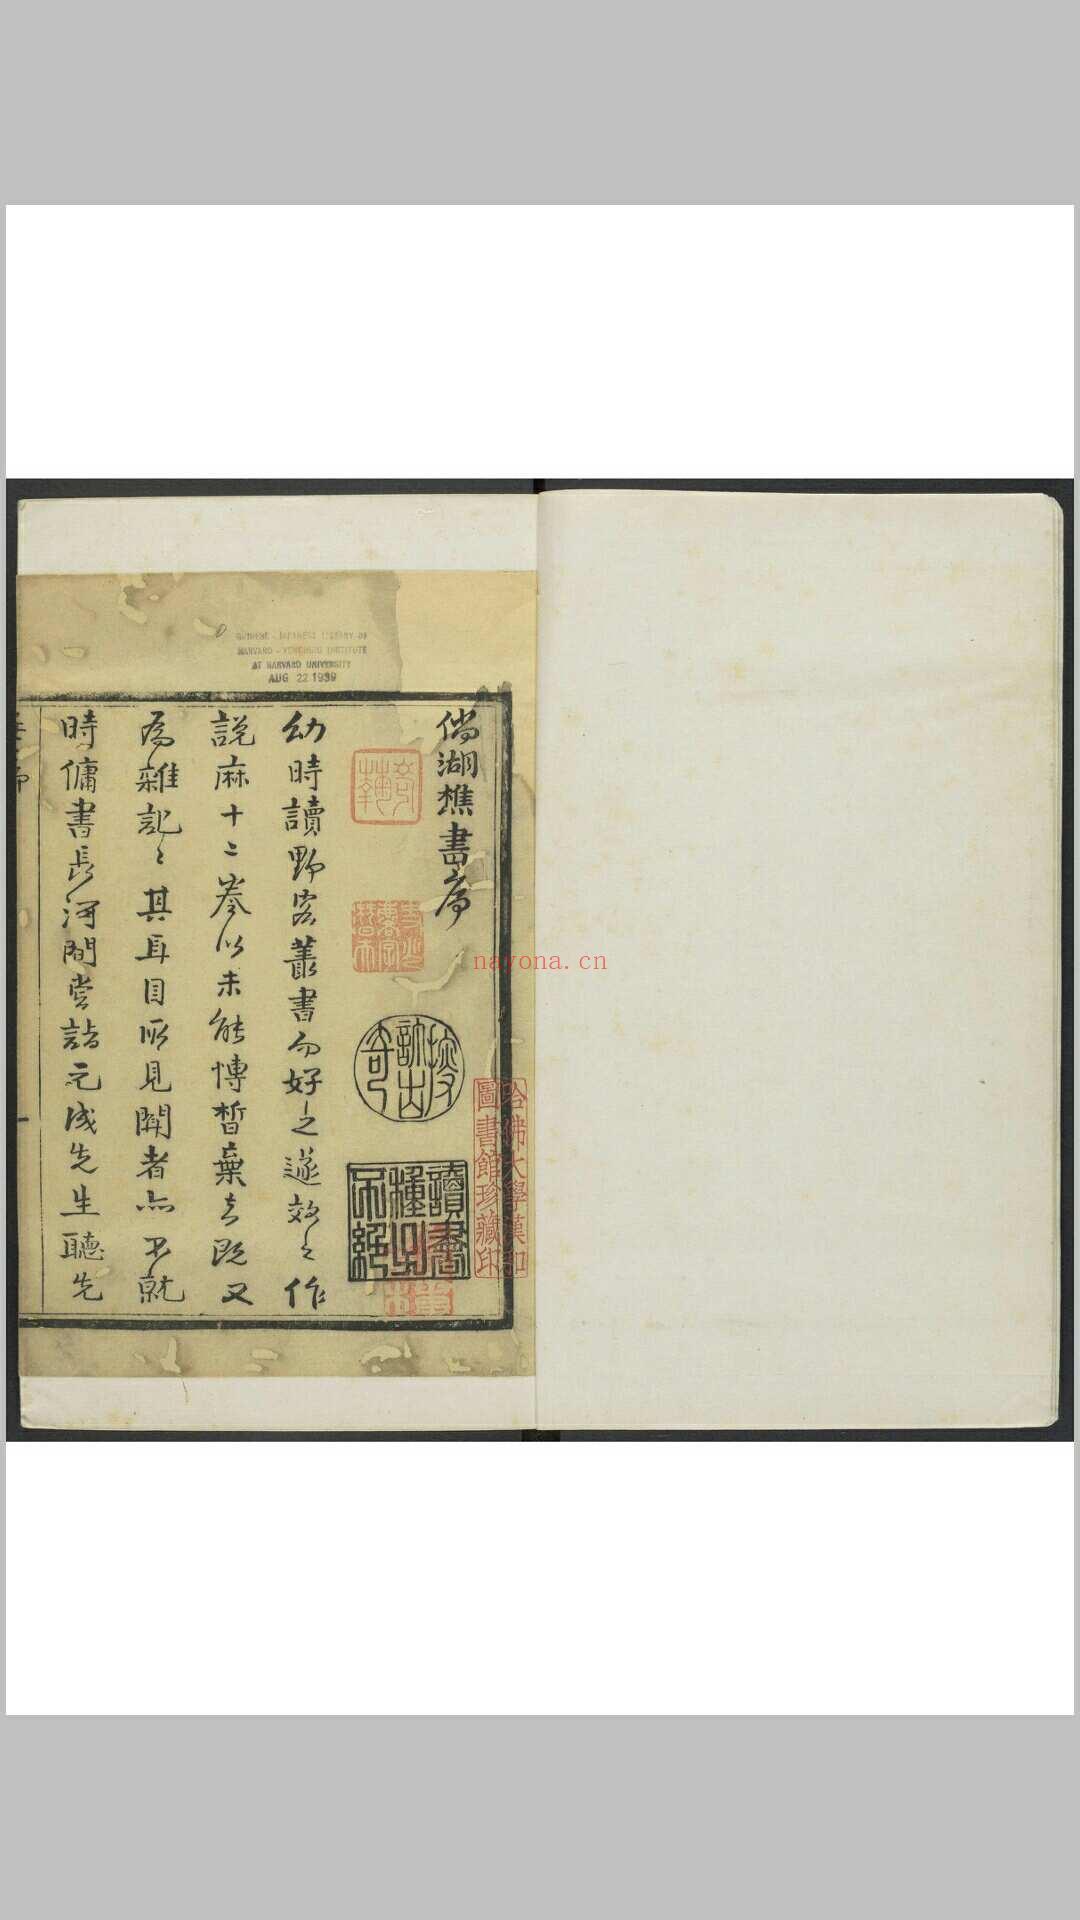 CHINESE - JAPANESE LIBRARY OF
HARVARD - YENCHING INSTITUTE
AT HARVARD UNIVERSITY
AUG 22 1939
倘湖樵書序
幼時讀野客叢書而好之遂效之作
說麻十二卷以未能博晳棄去既又
為雜記〻其耳目所見聞者亦不就
時傭書長河間嘗詣元成先生聽先
讀書種子不絕
哈佛大學漢和
圖書館珍藏印
nayona.cn